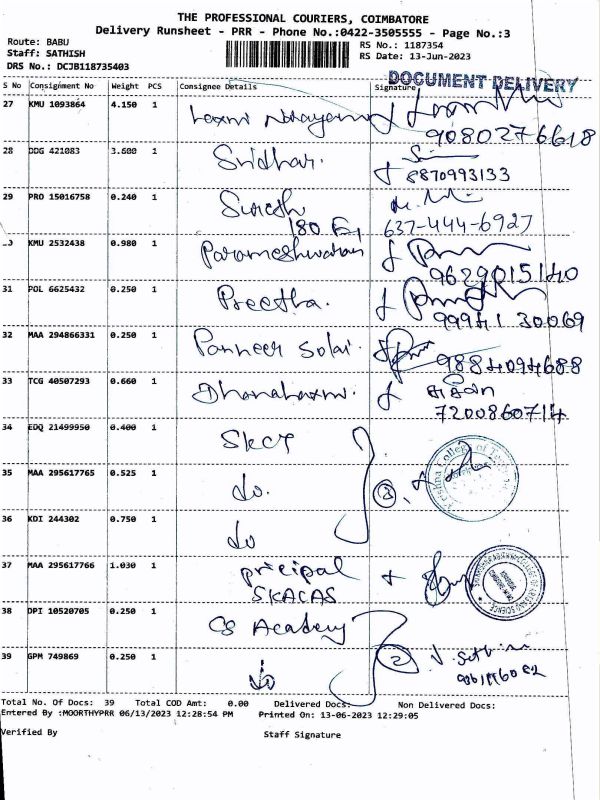 THE PROFESSIONAL COURIERS, COIMBATORE
Delivery Runsheet - PRR - Phone No.:0422-3505555 - Page No.:3
Route: BABU
Staff: SATHISH
DRS No.: DCJB118735403
RS No.: 1187354
RS Date: 13-Jun-2023
DOCUMENT DELIVERY
S No Consignment No Weight PCS Consignee Details Signature
27 KMU 1093864 4.150 1 Laxmi Narayanan
9080276618
28 DDG 421083 3.600 1 Sridhar.
8870993133
29 PRO 15016758 0.240 1 Suresh
637-444-6927
KMU 2532438 0.980 1 Parameshwaran
9629015140
31 POL 6625432 0.250 1 Preetha.
99941 30069
32 MAA 294866331 0.250 1 Panneer Solai.
9884094688
33 TCG 40507293 0.660 1 Dhanalaxmi.
7200860714
34 EDQ 21499950 0.400 1 SKCT
35 MAA 295617765 0.525 1 do.
36 KDI 244302 0.750 1 do
37 MAA 295617766 1.030 1 pricipal
SKACAS
38 DPI 10520705 0.250 1 CS Academy
39 GPM 749869 0.250 1 do
2
Total No. Of Docs: 39 Total COD Amt: 0.00 Delivered Docs: Non Delivered Docs:
Entered By :MOORTHYPRR 06/13/2023 12:28:54 PM Printed On: 13-06-2023 12:29:05
Verified By Staff Signature